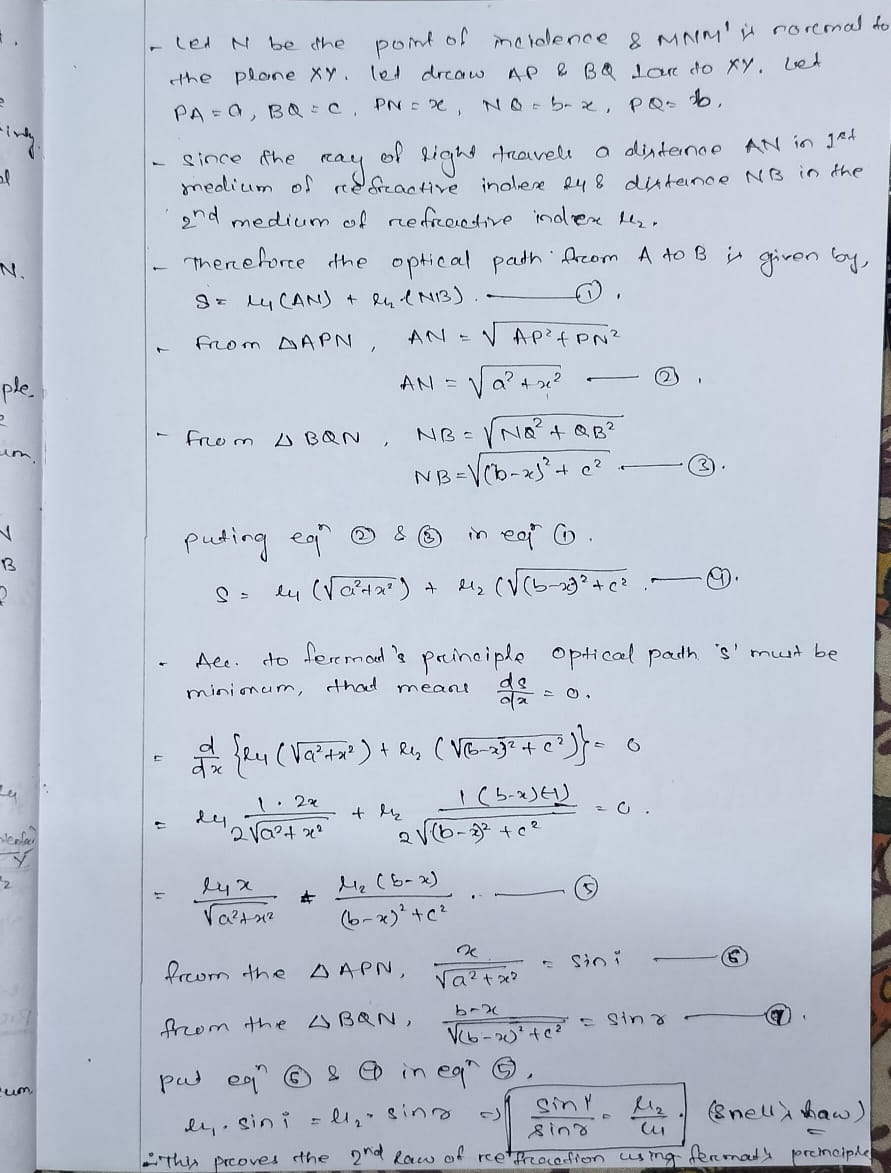 - Let N be the point of incidence & MNM' is noremal to
the plane XY. let dreaw AP & BQ Lar to XY. Let
PA = a, BQ = c, PN = x, NQ = b-x, PQ = b.
- Since the reay of light travels a distance AN in 1st
medium of refractive index μ1 & distance NB in the
2nd medium of refreactive index μ2.
- Therefore the optical path from A to B is given by,
S = μ1 (AN) + μ2 (NB). — ①.
- From △APN, AN = √AP² + PN²
AN = √a² + x² — ②.
- From △BQN, NB = √NQ² + QB²
NB = √(b-x)² + c² — ③.
puting eqn ② & ③ in eqn ①.
S = μ1 (√a²+x²) + μ2 (√(b-x)² + c² . — ④.
- Acc. to fermat's principle optical path 's' must be
minimum, that means ds/dx = 0.
= d/dx {μ1 (√a²+x²) + μ2 (√(b-x)² + c²)} = 0
= μ1 1. 2x / 2√a²+x² + μ2 1 (b-x)(-1) / 2√(b-x)² + c² = 0.
= μ1 x / √a²+x² = μ2 (b-x) / (b-x)² + c² . — ⑤
from the △APN, x / √a²+x² = sin i — ⑥
from the △BQN, b-x / √(b-x)² + c² = sin r — ⑦.
put eqn ⑥ & ⑦ in eqn ⑤,
μ1. sin i = μ2. sin r ⇒ sin i / sin r = μ2 / μ1. (Snell's Law)
∴ This proves the 2nd law of refraction using fermat's principle
ple
um.
N.
N
B
Y
um